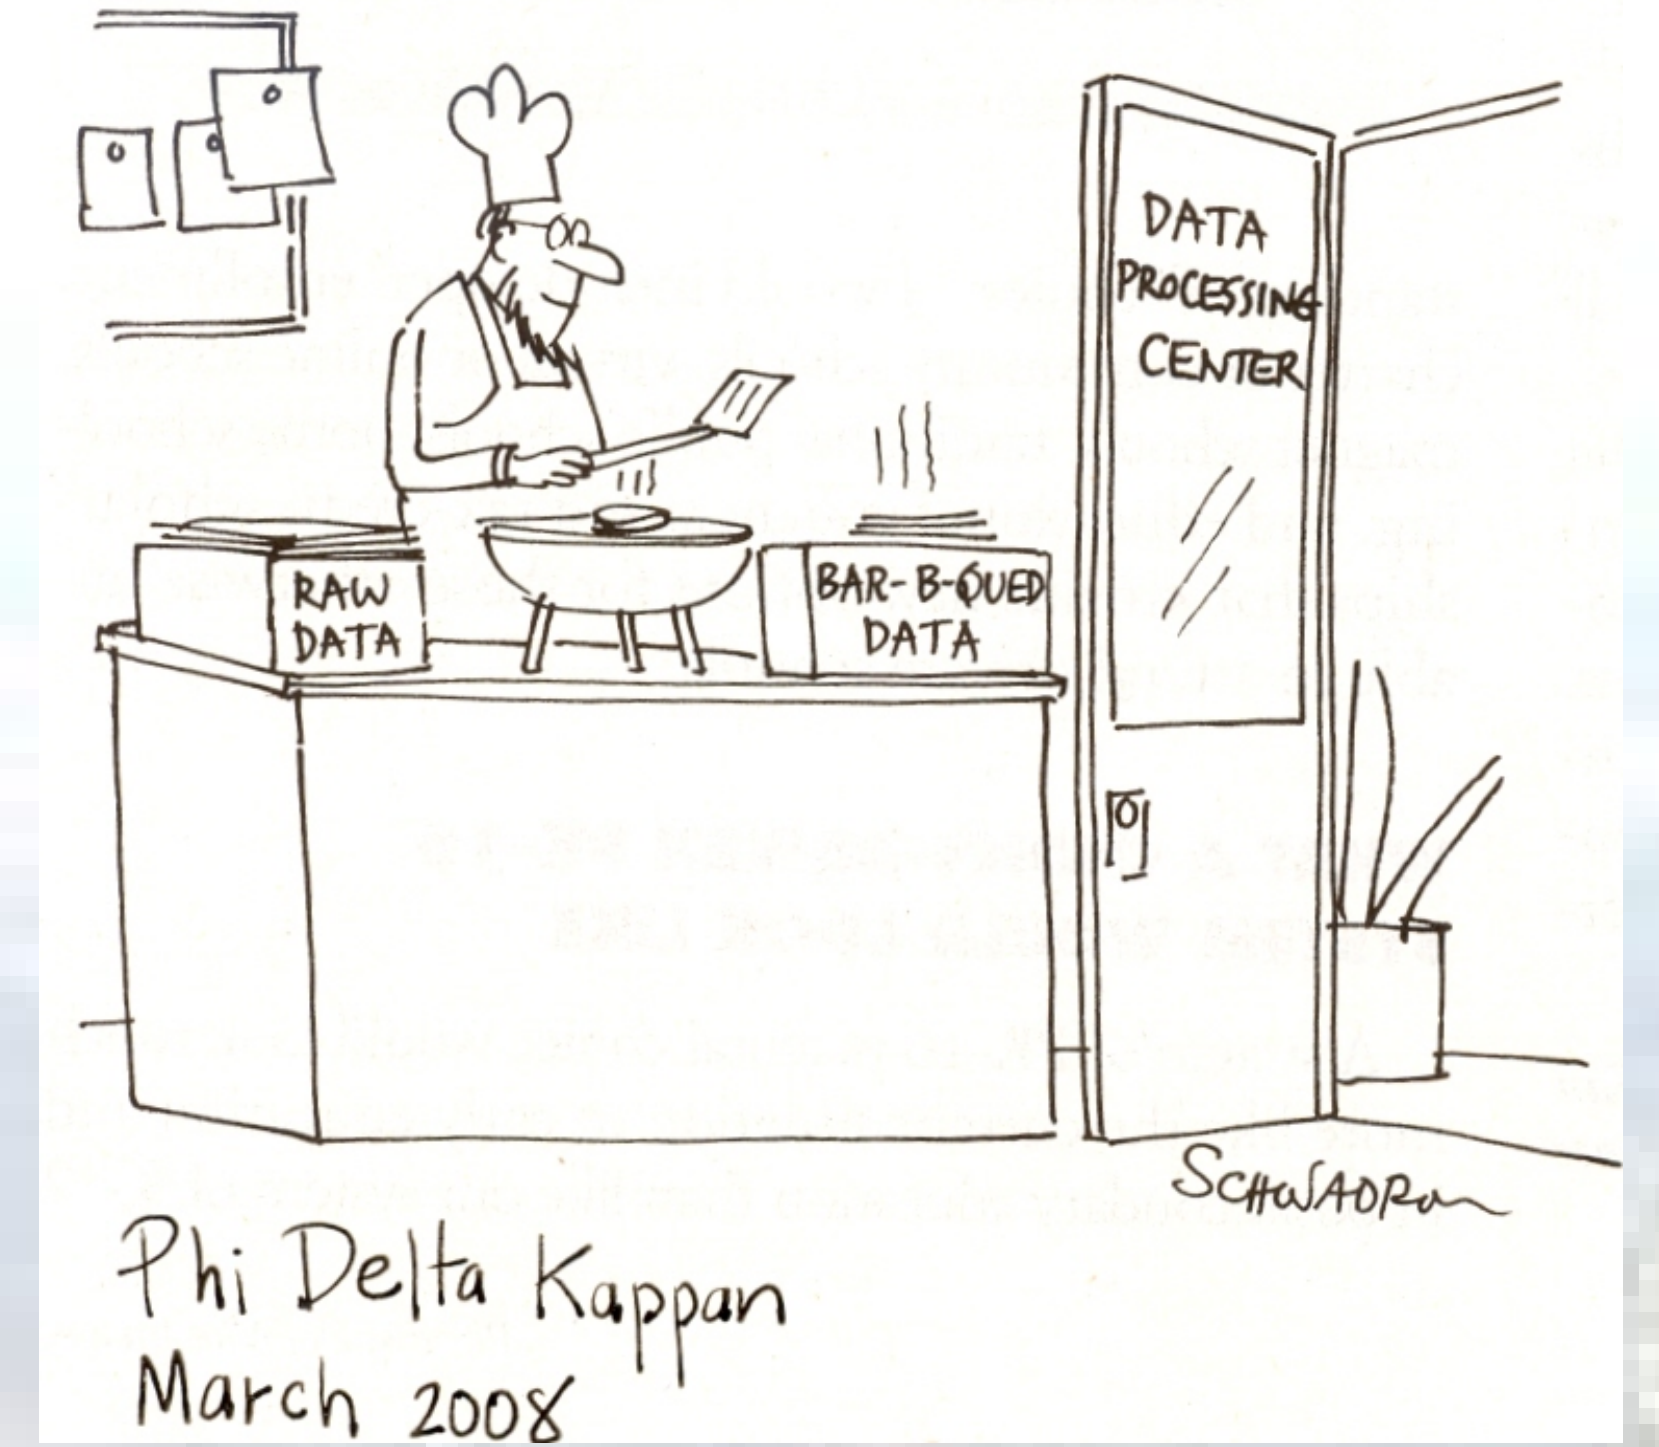 DATA
PROCESSING
CENTER
RAW
DATA
BAR-B-QUED
DATA
SCHWADRON
Phi Delta Kappan
March 2008